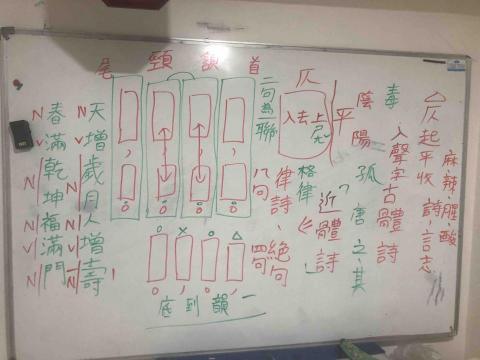 麻.辣.腥.酸
仄起平收 詩.言志
入聲字古體詩
毒
陰陽 孤 唐之其
平
「近體詩」
仄
入去上
格律
律詩、絕句
二句為聯
八句
四句
首
頷
頸
尾
一韻到底
天增歲月人增壽
春滿乾坤福滿門